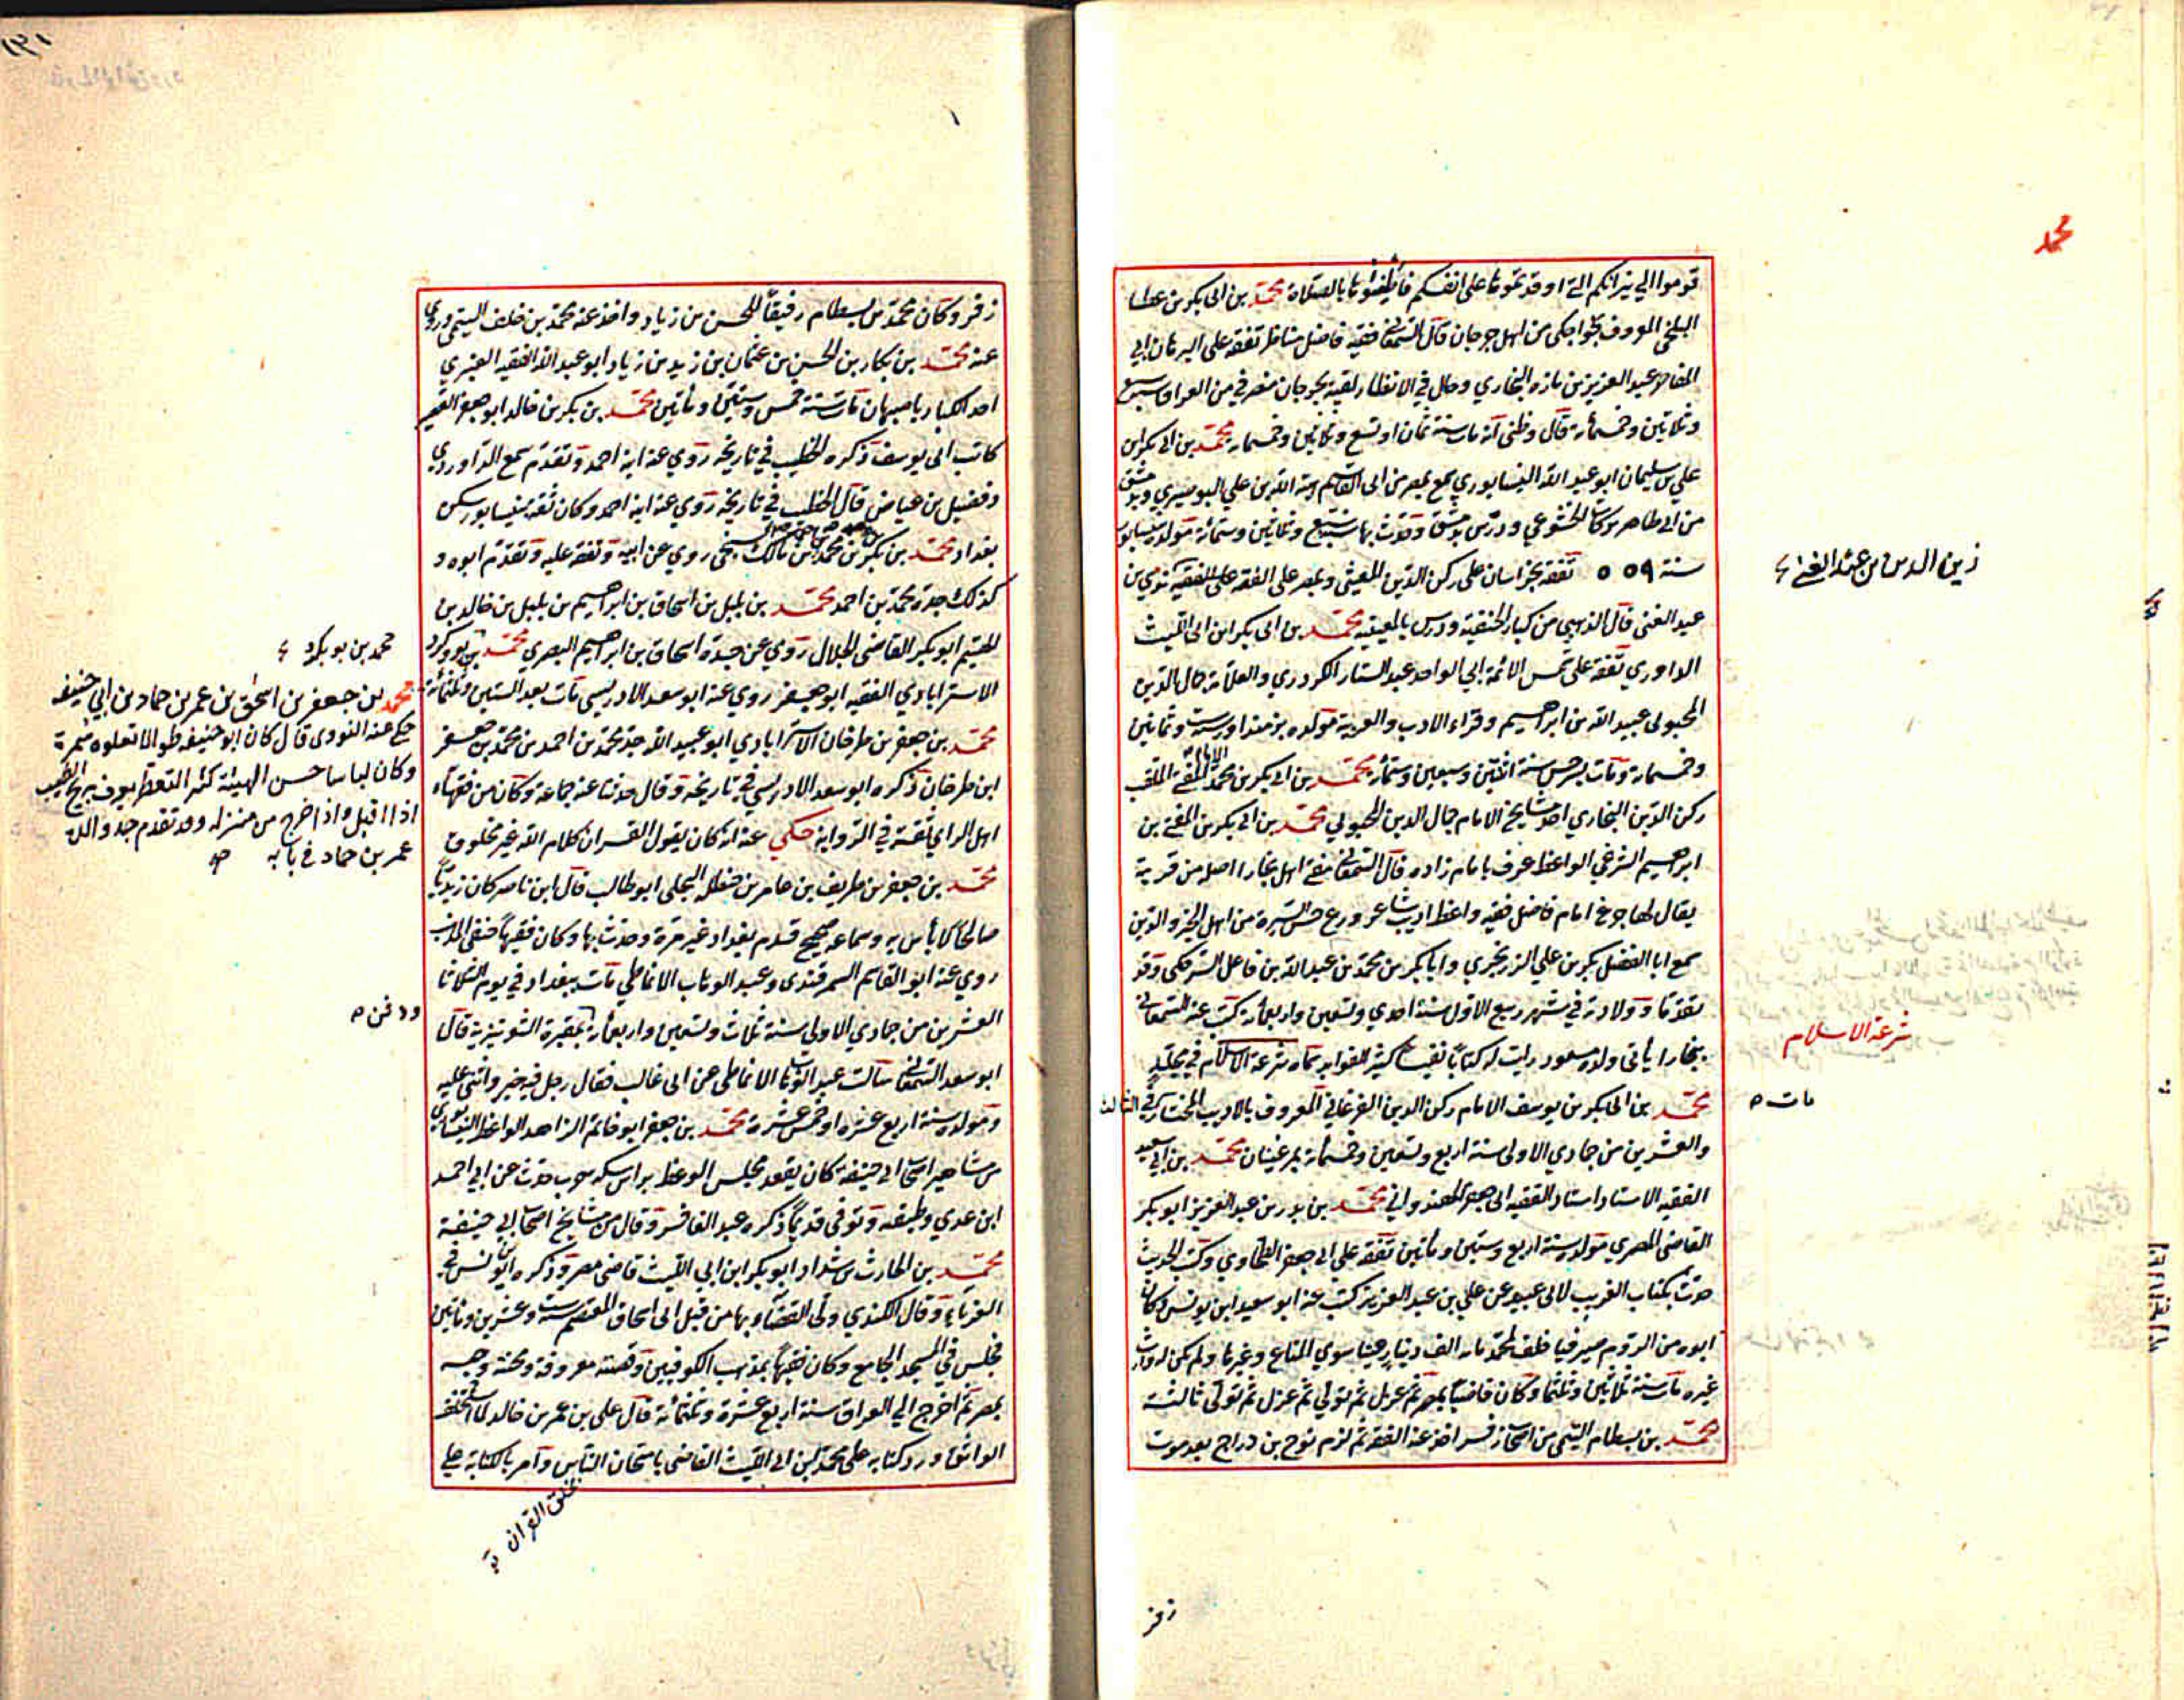 محمد
قوموا الى نيرانكم التي اوقدتموها على انفسكم فاطفئوها بالصلاة محمد بن ابى بكر بن عطا
البلخي المعروف بخواجكى من اهل جرجان قال السمعاني فقيه فاضل مناظر تفقه على البرهان ابي
المفاخر عبد العزيز بن مازه البخاري وحال في الانظار لقيته بجرجان منصرفي من العراق سنة سبع
وثلاثين وخمسمائة قال وظني انه مات سنة ثمان او تسع وثلاثين وخمسمائة محمد بن ابى بكر بن
علي بن سليمان ابو عبد الله النيسابوري سمع بمصر من ابى القاسم هبة الله بن علي البوصيري وبدمشق
من ابي طاهر بركات الخشوعي ودرس بدمشق وحدث بها سنة سبع وثلاثين وستمائة مولده بنيسابور
سنة ٥٥٩ تفقه بخراسان على ركن الدين المغيثى وبمصر على الفقه على الفقيه نومي بن
عبد الغنى قال الذهبي من كبار الحنفية ودرس بالمعينيه محمد بن ابى بكر ابن ابى الليث
الداوري تفقه على شمس الائمة ابي الواحد عبد الستار الكردري والعلامة جمال الدين
المحبوبى عبيد الله بن ابراهيم وقراء الادب والعربية مولده بزمنداور ست وثمانين
وخمسمائة ومات بسرخس سنة اثنتين وسبعين وستمائة محمد بن ابى بكر بن محمد الامام المفتى الملقب
ركن الدين البخاري احد مشايخ الامام جمال الدين المحبوبي محمد بن ابى بكر بن المفتى بن
ابراهيم الشرغي الواعظ عرف بامام زاده قال السمعاني مفتى اهل بخارا اصله من قرية
يقال لها جرغ امام فاضل فقيه واعظ اديب شاعر ورع حسن السيره من اهل الخير والدين
سمع ابا الفضل بكر بن علي الزرنجري وابا بكر بن محمد بن عبد الله بن فاعل السرحكي وقد
تقدما وولادته في شهر ربيع الاول سنة احدي وتسعين واربعمائة كتب عنه السمعاني
ببخارا يأتى ولده مسعود رايت له كتابا نفيسا كثير الفوايد سماه شرعة الاسلام في مجلد
محمد بن ابى بكر بن يوسف الامام ركن الدين الفرغاني المعروف بالاديب المختار في الثالث
والعشرين من جمادي الاولى سنة اربع وتسعين وخمسمائة بمرغينان محمد بن ابي سعيد
الفقيه الاستاد استاد الفقيه ابى جعفر الهندواني محمد بن بدر بن عبد العزيز ابو بكر
القاضى المصري مولده سنة اربع وستين ومائتين تفقه على ابى جعفر الطحاوي وكتب الحديث
حدث بكتاب الغريب لابى عبيد عن علي بن عبد العزيز كتب عنه ابو سعيد ابن يونس وكان
ابوه من الروم صيرفيا خلف لمحمد مائة الف دينار عينا سوي المتاع وغيرها ولم يكن له وارث
غيره مات سنة ثلاثين وثلثمائة وكان قاضيا بمصر ثم عزل ثم تولي ثم عزل ثم تولى ثالثة
محمد بن بسطام التيمى من اصحاب زفر اخذ عنه الفقه ثم لزم نوح بن دراج بعد موت
زين الدين بن عبد الغنى
شرعة الاسلام
مات
زفر
زفر وكان محمد بن بسطام رفيقاً للحسن بن زياد واخذ عنه محمد بن خلف التيمى وروى
عنه محمد بن بكار بن الحسن بن عثمان بن زيد بن زياد ابو عبد الله الفقيه العنبري
احد الكبار باصبهان مات سنة خمس وستين ومأتين محمد بن بكر بن خالد ابو جعفر القصير
كاتب ابى يوسف ذكره الخطيب في تاريخه روي عنه ابنه احمد وتقدم سمع الدراوردي
وفضيل بن عياض قال الخطيب في تاريخه روي عنه ابنه احمد وكان ثقة بنيسابور سكن
بغداد محمد بن بكر بن محمد بن مالك السنجى روي عن ابيه وتفقه عليه وتقدم ابوه و
كذلك جده محمد بن احمد محمد بن بلبل بن اسحاق بن ابراهيم بن بلبل بن خالد بن
الهيثم ابو بكر القاضى الخلال روي عن جده اسحاق بن ابراهيم البصري محمد بن بو بكرد
الاسترابادي الفقيه ابو جعفر روي عنه ابو سعد الادريسى مات بعد الستين وثلثمائة
محمد بن جعفر بن طرخان الاسترابادي ابو عبيد الله جد محمد بن احمد بن محمد بن جعفر
ابن طرخان ذكره ابو سعد الادريسى في تاريخه وقال حدثنا عنه جماعة وكان من فقهاء
اهل الراي ثقة في الرواية حكي عنه انه كان يقول القران كلام الله غير مخلوق
محمد بن جعفر بن طريف بن عامر بن حنظلة البجلى ابو طالب قال ابن ناصر كان زيدياً
صالحاً لا بأس به وسماعه صحيح قدم بغداد غير مرة وحدث بها وكان فقيهاً حنفى المذهب
روي عنه ابو القاسم السمرقندى وعبد الوهاب الانماطي مات ببغداد في يوم الثلاثا
العشرين من جمادي الاولى سنة ثلاث وتسعين واربعمائة بمقبرة الشونيزية قال
ابو سعد السمعاني سألت عبد الوهاب الانماطى عن ابى غالب فقال رجل فيه خير واثنى عليه
ومولده سنة اربع عشره او خمس عشرة محمد بن جعفر ابو فاتم الزاهد الواعظ النيسابوري
من مشاهير اصحاب ابى حنيفة كان يقعد مجلس الوعظ براس سكة حرب حدث عن ابي احمد
ابن عدي وطبقته وتوفى قديماً ذكره عبد الغافر وقال من مشايخ اصحاب ابي حنيفة
محمد بن الحارث بن شداد ابو بكر ابن ابي الليث قاضى مصر وذكره ابن يونس في
الغرباء وقال الكندي ولى القضاء بها من قبل ابى اسحاق المعتصم ست وعشرين ومأتين
فجلس في المسجد الجامع وكان فقيهاً بمذهب الكوفيين وقصته معروفة ومحنة وحبسه
بمصر ثم اخرج الي العراق سنة اربع عشرة وثلثمائة قال على بن عمر بن خالد لما استخلف
الواثق ورد كتابه على محمد ابن ابى الليث القاضى بامتحان الناس وامر بالكتابة على
خلق القران
محمد بن بو بكرد
محمد بن جعفر بن اسحق بن عمر بن حماد بن ابي حنيفة
حكى عنه النووى قال كان ابو حنيفة طوالا تعلوه سمرة
وكان لباسا حسن الهيئة كثير التعطر يعرف بريح الطيب
اذا اقبل واذا خرج من منزله وقد تقدم جد والده
عمر بن حماد في بابه
ودفن